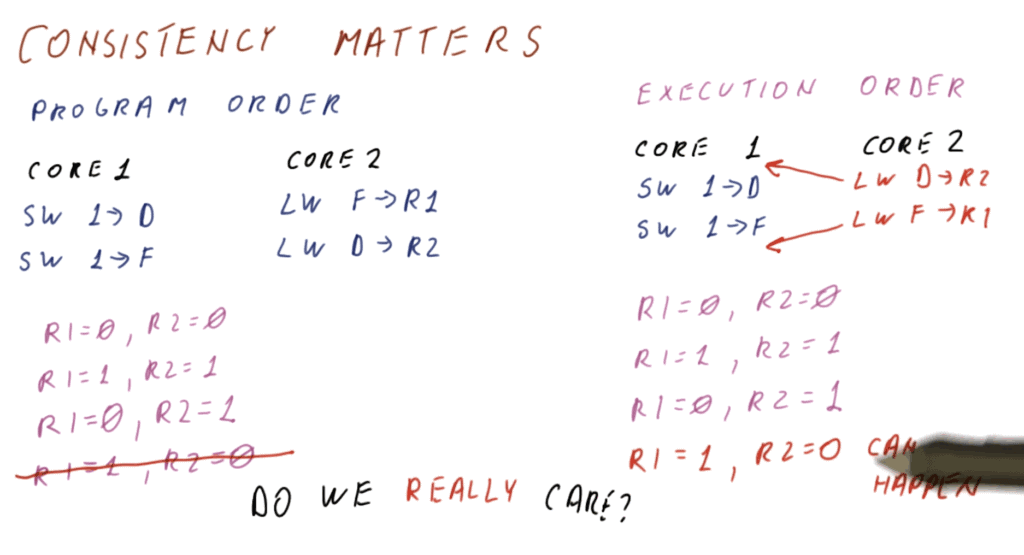 CONSISTENCY MATTERS
PROGRAM ORDER
CORE 1 CORE 2
SW 1→D LW F→R1
SW 1→F LW D→R2
R1=0, R2=0
R1=1, R2=1
R1=0, R2=1
R1=1, R2=0
EXECUTION ORDER
CORE 1 CORE 2
SW 1→D LW D→R2
SW 1→F LW F→R1
R1=0, R2=0
R1=1, R2=1
R1=0, R2=1
R1=1, R2=0 CAN
HAPPEN
DO WE REALLY CARE?